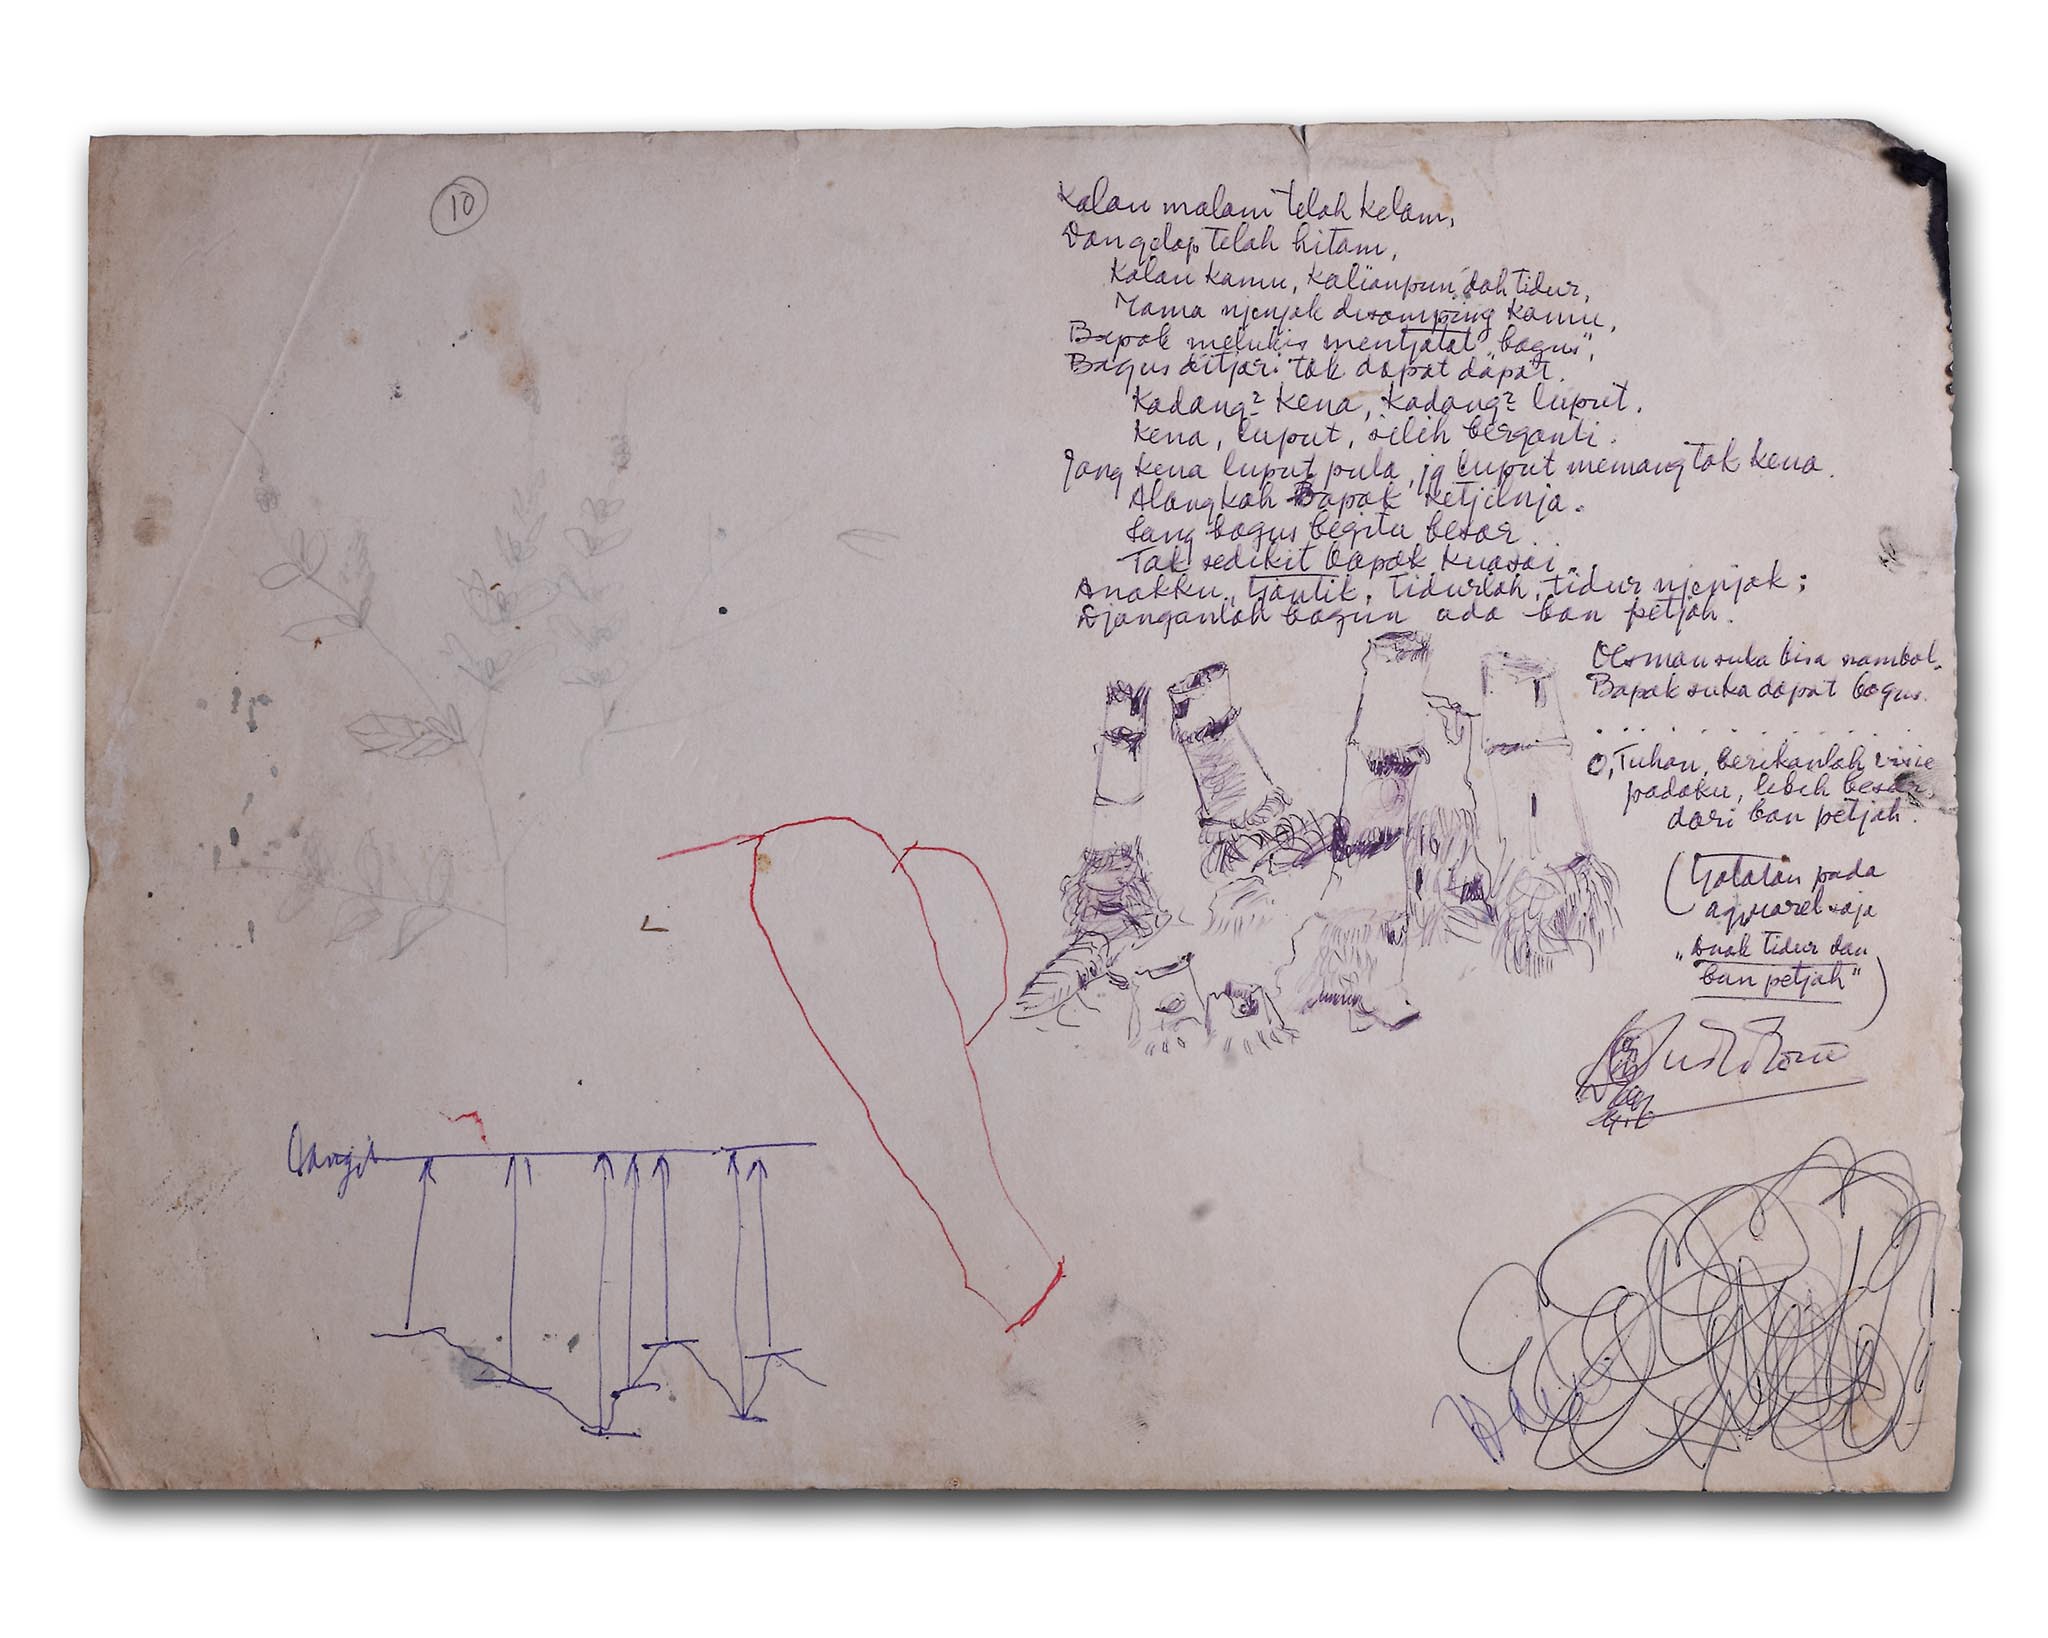 10
Kalau malam telah kelam,
Dan gelap telah hitam,
Kalau kamu, kalianpun dah tidur,
Mama njenjak disamping kamu,
Bapak melukis mentjatat „bagus”,
Bagus ditjari tak dapat dapat.
Kadang2 kena, kadang2 luput.
Kena, luput, silih berganti.
Jang kena luput pula, jg luput memang tak kena.
Alangkah Bapak ketjilnja.
Sang bagus begitu besar.
Tak sedikit bapak kuasai.
Anakku, tjantik, tidurlah, tidur njenjak;
Djanganlah bagun ada ban petjah.
Usman suka bisa nambal.
Bapak suka dapat bagus.
. . . . . . . . . . . .
O, Tuhan, berikanlah visie
padaku, lebih besar
dari ban petjah.
(Tjatatan pada
aquarel saja
„Anak tidur dan
ban petjah”)
Langit